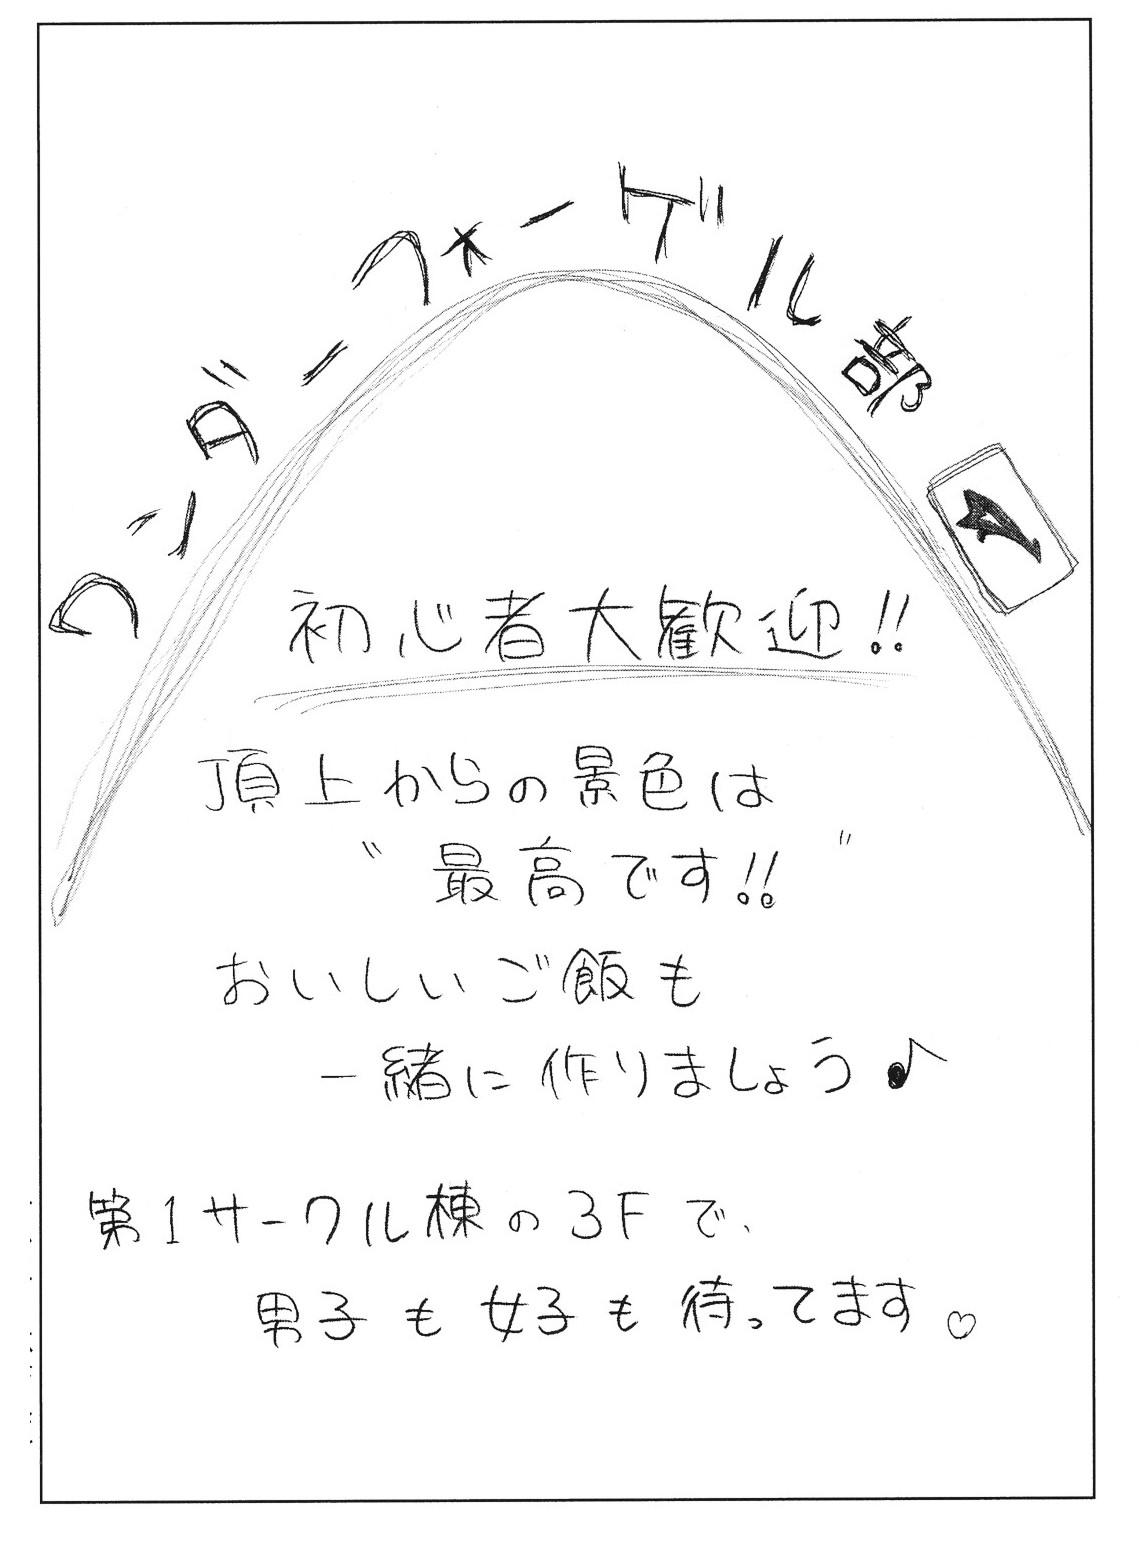 ワンダーフォーゲル部
初心者大歓迎!!
頂上からの景色は
〝最高です!!〞
おいしいご飯も
一緒に作りましょう♪
第1サークル棟の3Fで、
男子も女子も待ってます♡